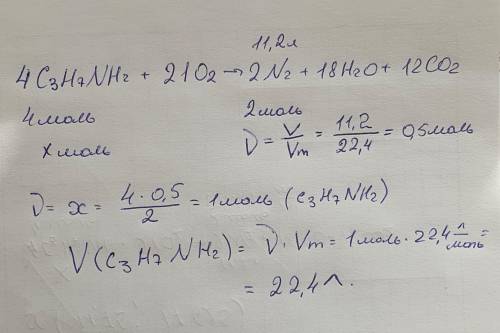 11,2л
4C₃H₇NH₂ + 21O₂ → 2N₂ + 18H₂O + 12CO₂
4моль 2моль
xмоль ν = V/Vm = 11,2/22,4 = 0,5моль
ν = x = 4·0,5/2 = 1моль (C₃H₇NH₂)
V(C₃H₇NH₂) = ν·Vm = 1моль·22,4 л/моль =
= 22,4л.